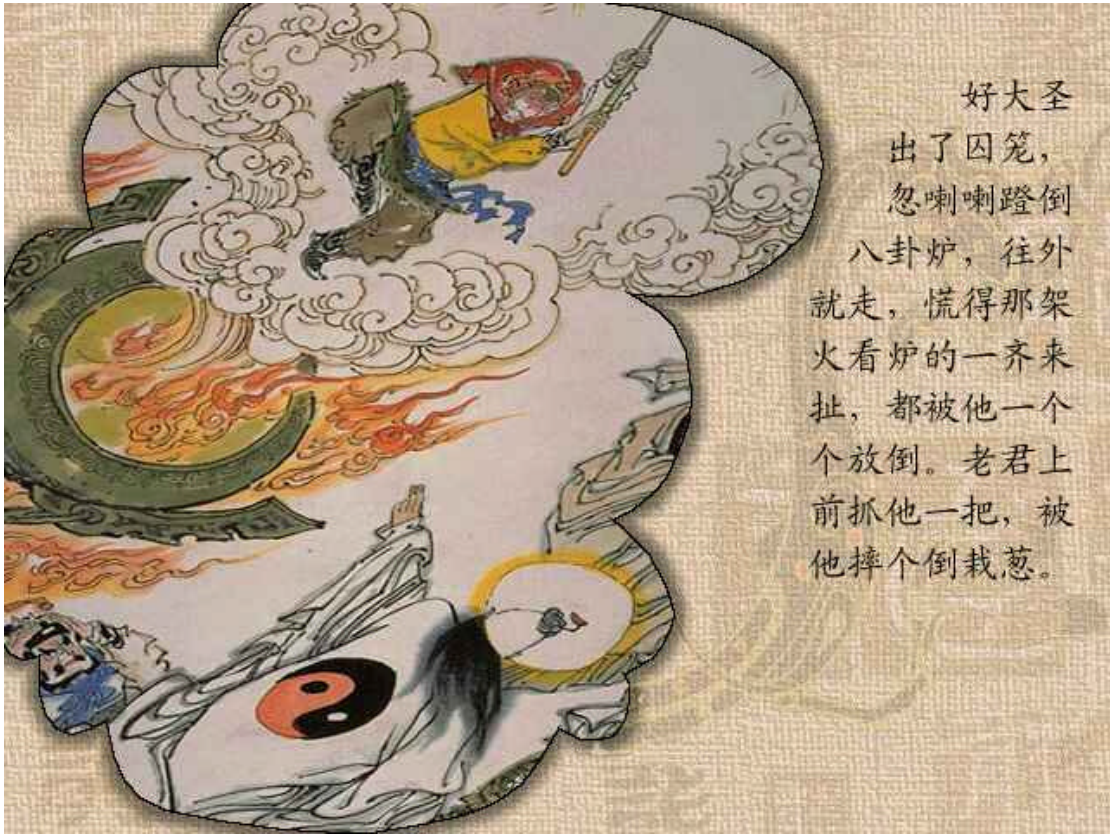 好大圣
出了囚笼，
忽喇喇蹬倒
八卦炉，往外
就走，慌得那架
火看炉的一齐来
扯，都被他一个
个放倒。老君上
前抓他一把，被
他摔个倒栽葱。